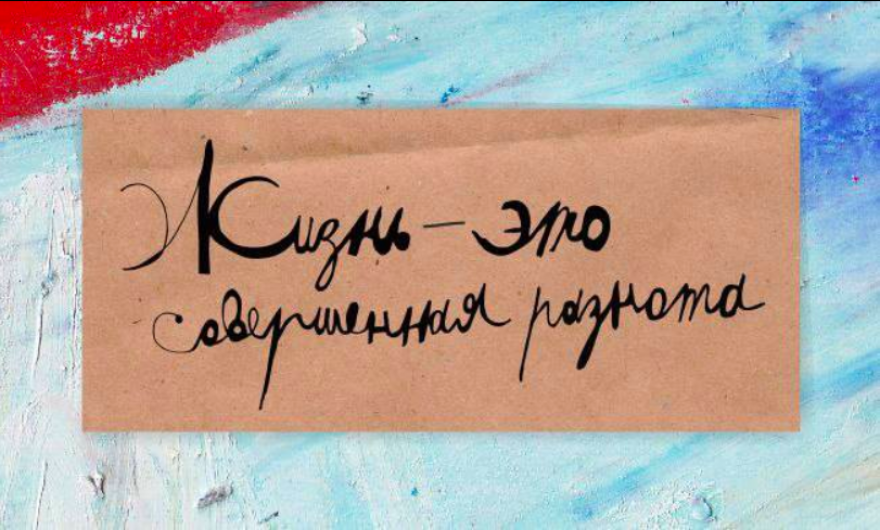 Жизнь – это
совершенная разнота